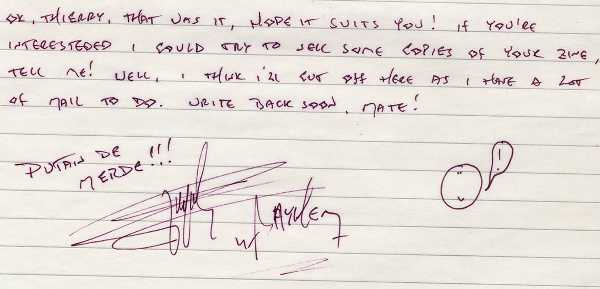 OK, THIERRY, THAT WAS IT, HOPE IT SUITS YOU! IF YOU'RE
INTERESTEDED I COULD TRY TO SELL SOME COPIES OF YOUR ZINE,
TELL ME! WELL, I THINK I'LL CUT OFF HERE AS I HAVE A LOT
OF MAIL TO DO. WRITE BACK SOON, MATE!
PUTAIN DE
MERDE!!!
!